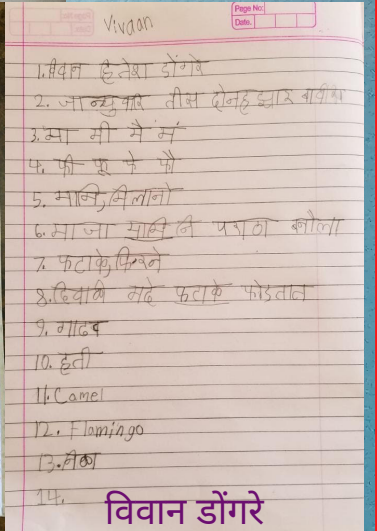 Page No:
Date.
Vivaan
1. विवान हितेश डोंगरे
2. जान्युवारि तीस दोनहझार
3. मा मी मै मं
4. फी फू फे फौ
5. मामि,
6. माजा मामि नि पराठा
7. फटाके,
8. मदे फटाके फोडतात
9. गाढव
10. हती
11. Camel
12. Flamingo
13.
14.
विवान डोंगरे